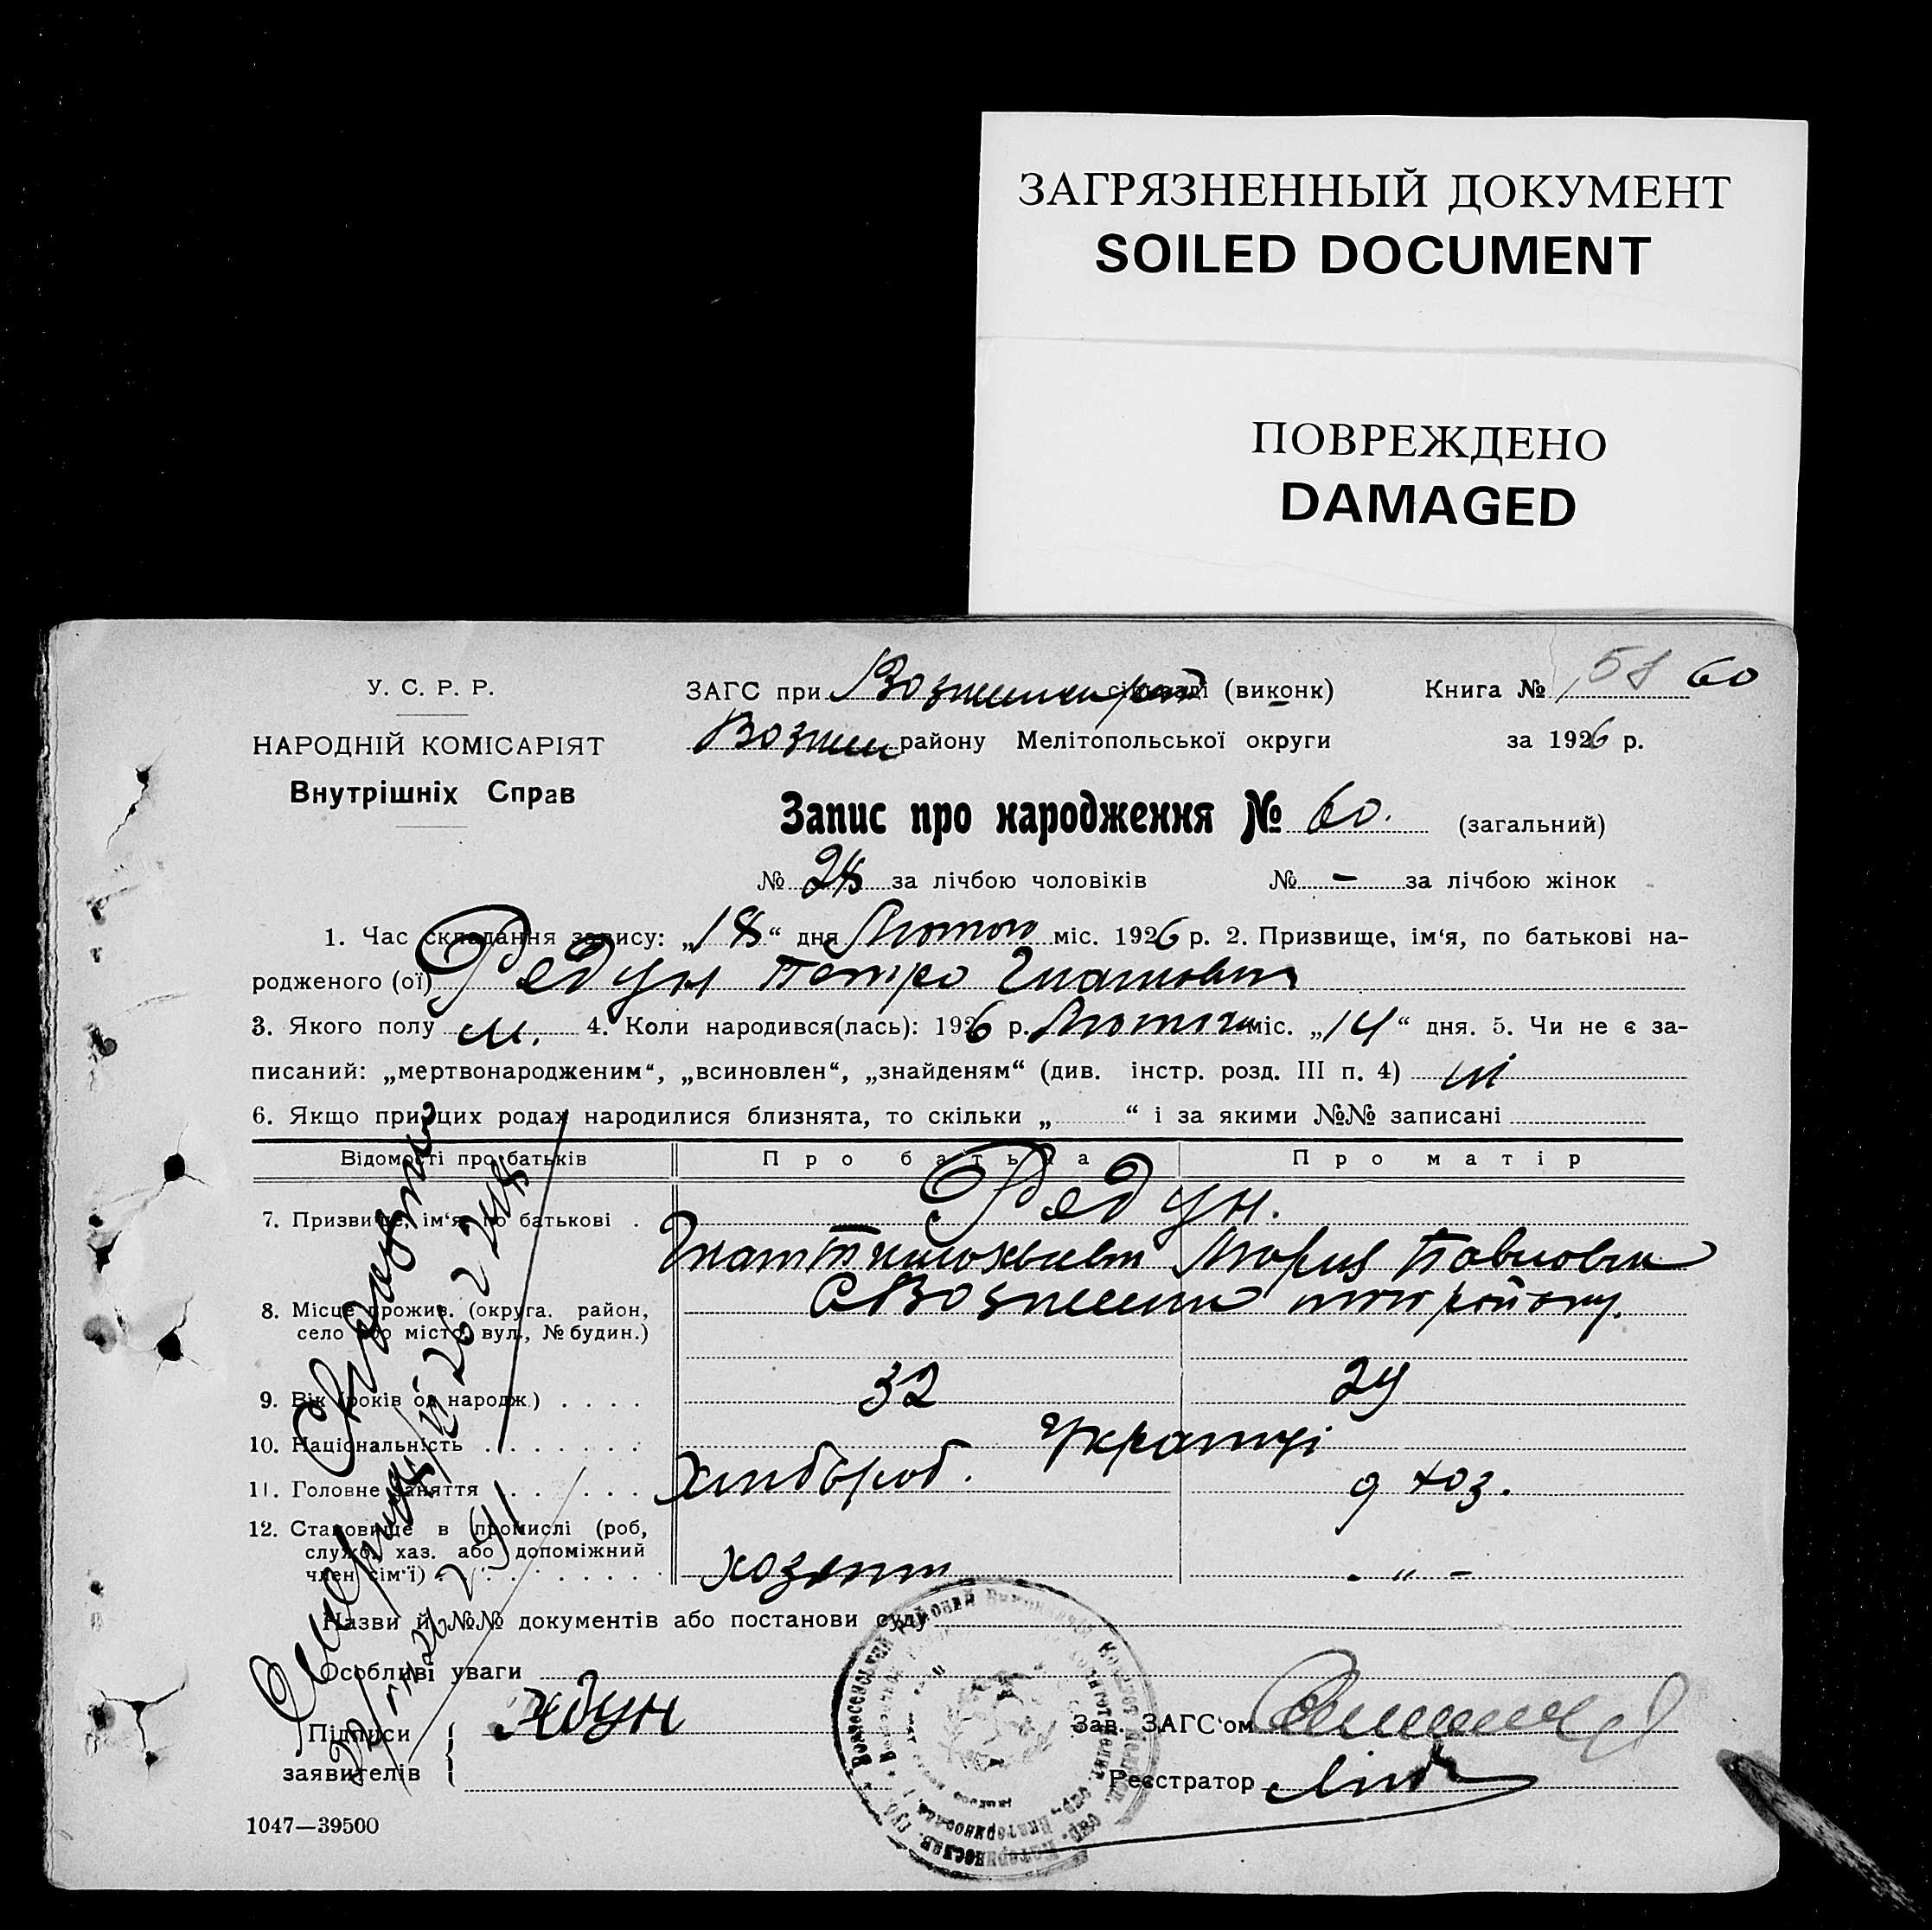 ЗАГРЯЗНЕННЫЙ ДОКУМЕНТ
SOILED DOCUMENT
ПОВРЕЖДЕНО
DAMAGED
У. С. Р. Р.
НАРОДНІЙ КОМІСАРІЯТ
Внутрішніх Справ
ЗАГС при (виконк)
Книга № 58 60
Возне району Мелітопольської округи
за 1926 р.
Запис про народження № 60. (загальний)
№ 28 за лічбою чоловіків № - за лічбою жінок
1. Час складання запису: „18“ дня Лютого міс. 1926 р. 2. Призвище, ім‘я, по батькові на-
родженого (ої) Редун Петро Гнатович
3. Якого полу м. 4. Коли народився(лась): 1926 р. Лютого міс. „14“ дня. 5. Чи не є за-
писаний: „мертвонародженим“, „всиновлен“, „знайденям“ (див. інстр. розд. III п. 4) ні
6. Якщо при цих родах народилися близнята, то скільки „ “ і за якими №№ записані
Відомості про батьків Про батька Про матір
7. Призвище, ім‘я, по батькові . Редун.
Гнат Марія Павловна
8. Місце прожив. (округа. район,
село або місто, вул., № будин.)
С Вознесенка того району.
9. Вік (років од народж) . . . . 32 29
10. Національність . . . . . . . Українці
11. Головне заняття . . . . . . Хлібороб. д хоз.
12. Становище в промислі (роб,
служб. хаз. або допоміжний
член сім‘ї) . . . . . . . . . . хозяїн - „ -
Назви й №№ документів або постанови суду
Особливі уваги
Підписи
заявителів
Редун
Зав. ЗАГС‘ом
Реєстратор
1047—39500